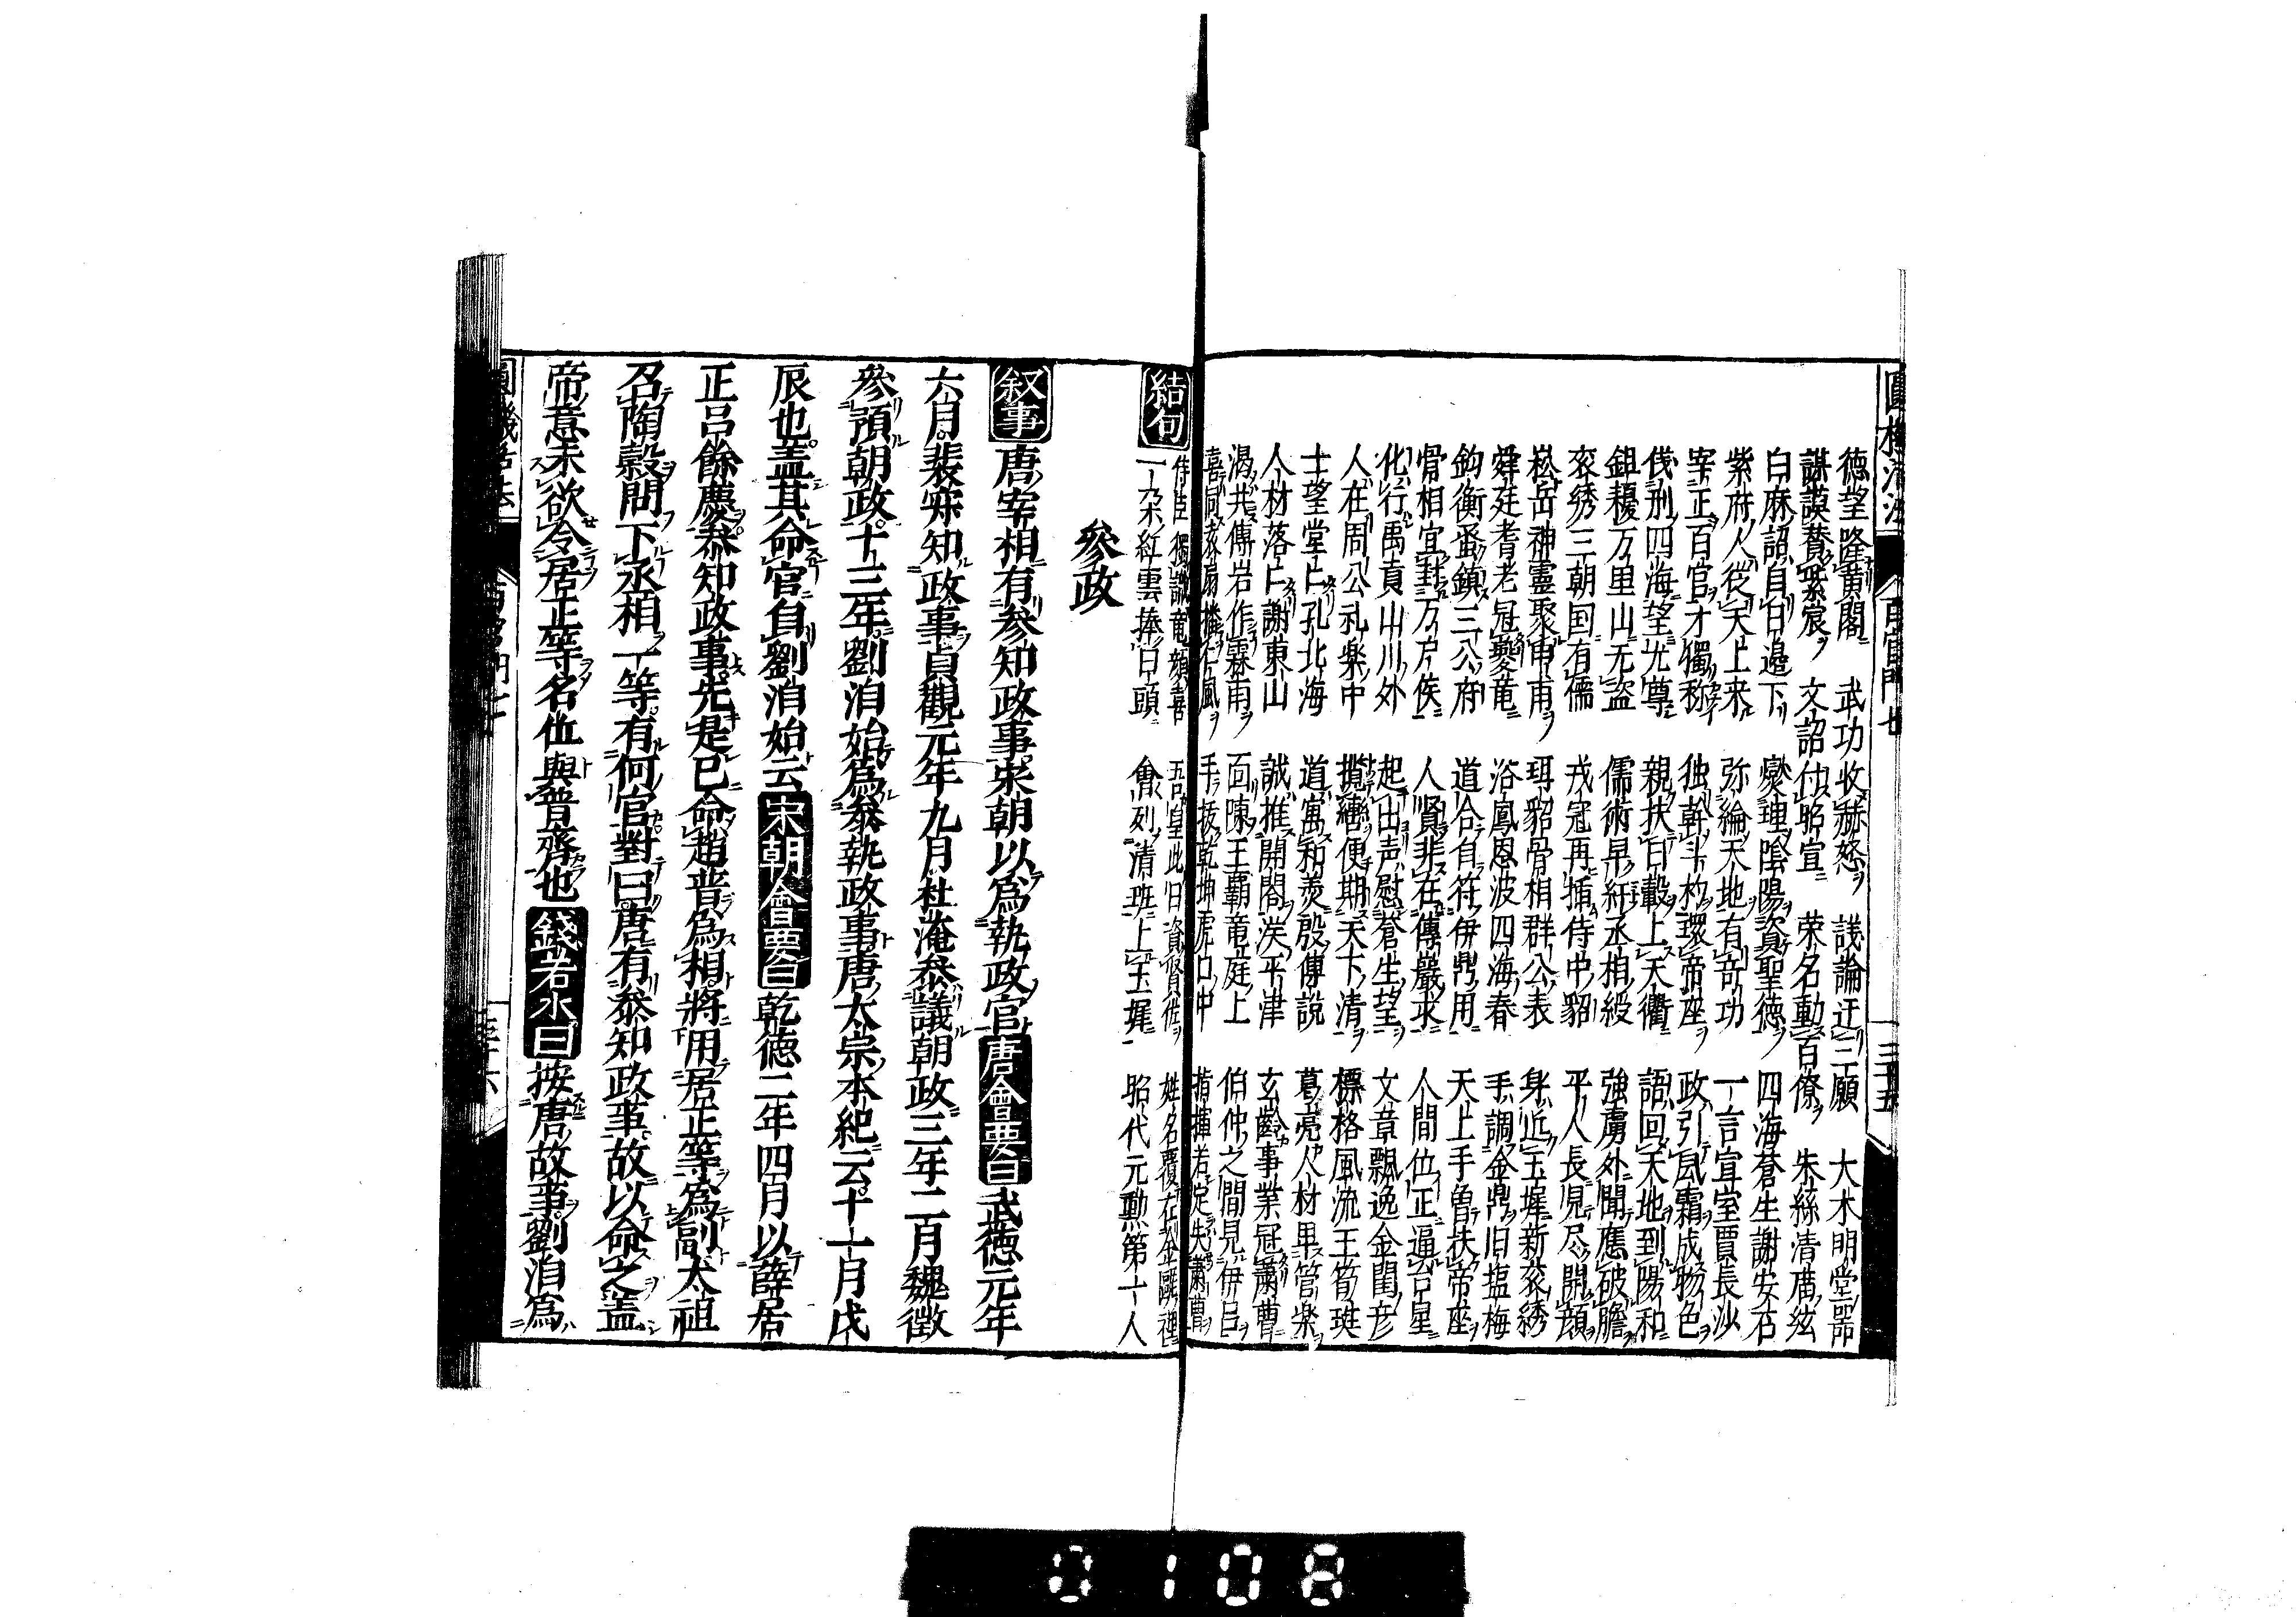 德望隆黄閣　武功收赫怒　議論迂三願　大木明堂器
謀謨賛紫宸　文詔仕昭宣　荣名動百僚　朱絲清庿絃
白麻詔自日邉下　燮理陰陽資聖德　四海蒼生謝安石
紫府人從天上来　弥綸天地有竒功　一言宣室賈長沙
宰正百官才獨称　独斡斗杓環帝座　政引風霜成物色
伐刑四海望尤尊　親扶日轂上天衢　語回天地到陽和
鉏耰万里山无盗　儒術早紆丞相綬　強虜外聞應破膽
衮绣三朝国有儒　戎冠再揷侍中貂　平人長見尽開顔
崧岳神靈聚申甫　珥貂骨相群公表　身近玉墀新衮綉
舜廷耆老冠夔竜　浴鳳恩波四海春　手調金鼎旧塩梅
鈞衡蚤鎮三公府　道合自符伊鼎用　天上手曽扶帝座
骨相宜封万户侯　人賢非在傳巖求　人間位正逼台星
化行禹貢山川外　起出声慰蒼生望　文章飄逸金閨彦
人在周公礼楽中　攬轡便期天下清　標格風流王筍班
士望堂上孔北海　道寓和羮殷傅説　葛亮人材卑管楽
人材落上謝東山　誠推開閤漢平津　玄齡事業冠蕭曹
渇共傳岩作霖雨　面陳王覇竜庭上　伯仲之間見伊吕
手扳乾坤虎口中　指揮若定失蕭曹
結句　侍臣獨識竜顔喜　五吾皇此旧資賢佐　姓名覆在金甌裡
一朶紅雲捧日頭　會列清班上玉墀　昭代元勲第一人
參政
叙事　唐宰相有参知政事宋朝以為執政官唐會要曰武德元年
六月裴寂知政事貞觀元年九月杜淹叅議朝政三年二月魏徴
參預朝政十三年劉洎始為叅執政事唐太宗本紀云十一月戊
辰也盖其命官自劉洎始云宋朝會要曰乾徳二年四月以薛居
正吕餘慶叅知政事先是已命趙普為相將用居正等為副太祖
召陶糓問下丞相一等有何官對曰唐有叅知政事故以命之盖
帝意未欲令居正等名位與普齊也錢若水曰按唐故事劉洎為